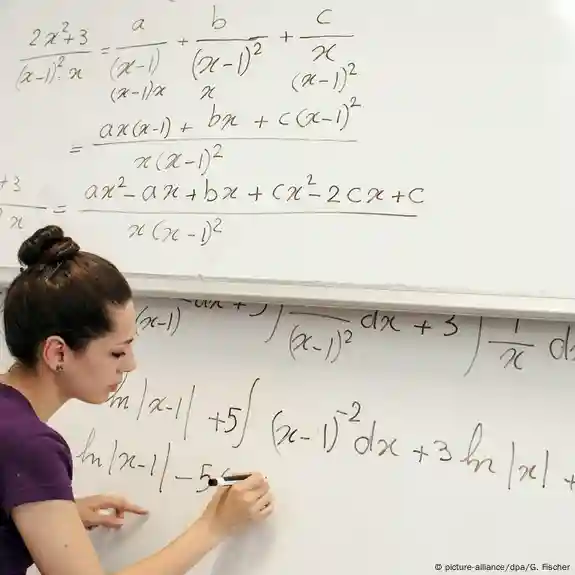 2x²+3 / (x-1)²·x = a / (x-1) + b / (x-1)² + c / x
(x-1)x x (x-1)²
= ax(x-1) + bx + c(x-1)² / x(x-1)²
+3 / x = ax² - ax + bx + cx² - 2cx + c / x(x-1)²
(x-1) dx + 5 ∫ / (x-1)² dx + 3 ∫ 1 / x d
ln |x-1| + 5 ∫ (x-1)⁻² dx + 3 ln |x| +
ln |x-1| - 5
© picture-alliance/dpa/G. Fischer